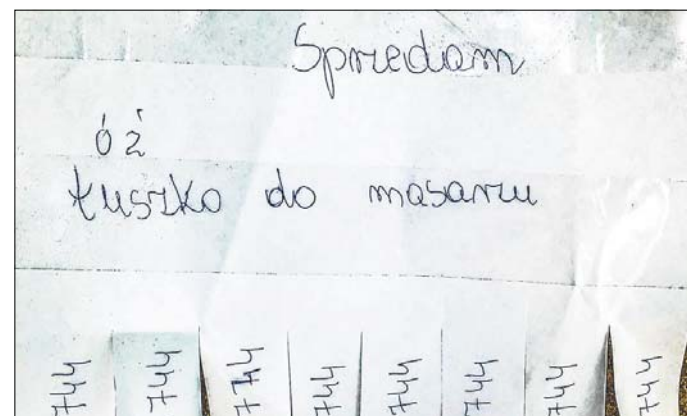 Sprzedam
óż
łuszko do masarzu
744
744
744
744
744
744
744
744